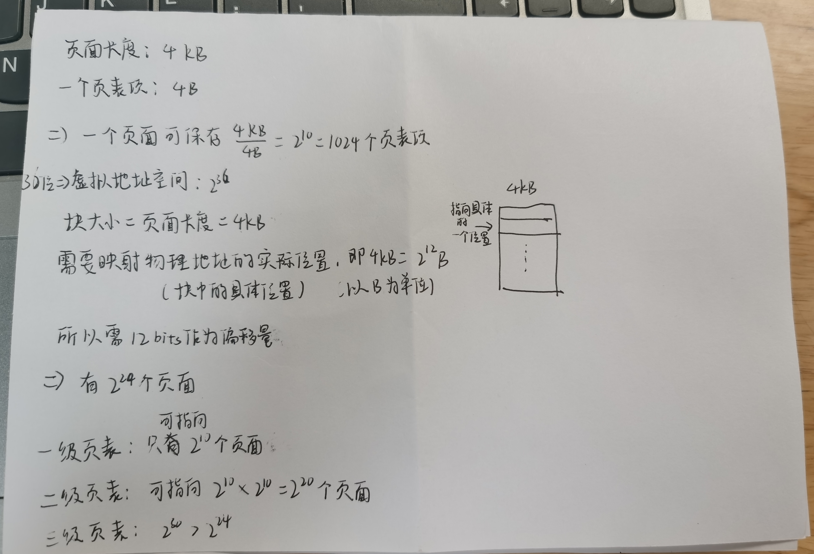 页面长度：4KB
一个页表项：4B
=) 一个页面可保存 4KB/4B = 2^10 = 1024个页表项
36位=)虚拟地址空间：2^36
块大小=页面长度=4KB
需要映射物理地址的实际位置，即4KB=2^12B
(块中的具体位置) (以B为单位)
所以需12bits作为偏移量
=) 有2^24个页面
可指向
一级页表：只有2^10个页面
二级页表：可指向 2^10×2^10=2^20个页面
三级页表：2^30>2^24
4KB
指向具体
的
一个位置
N